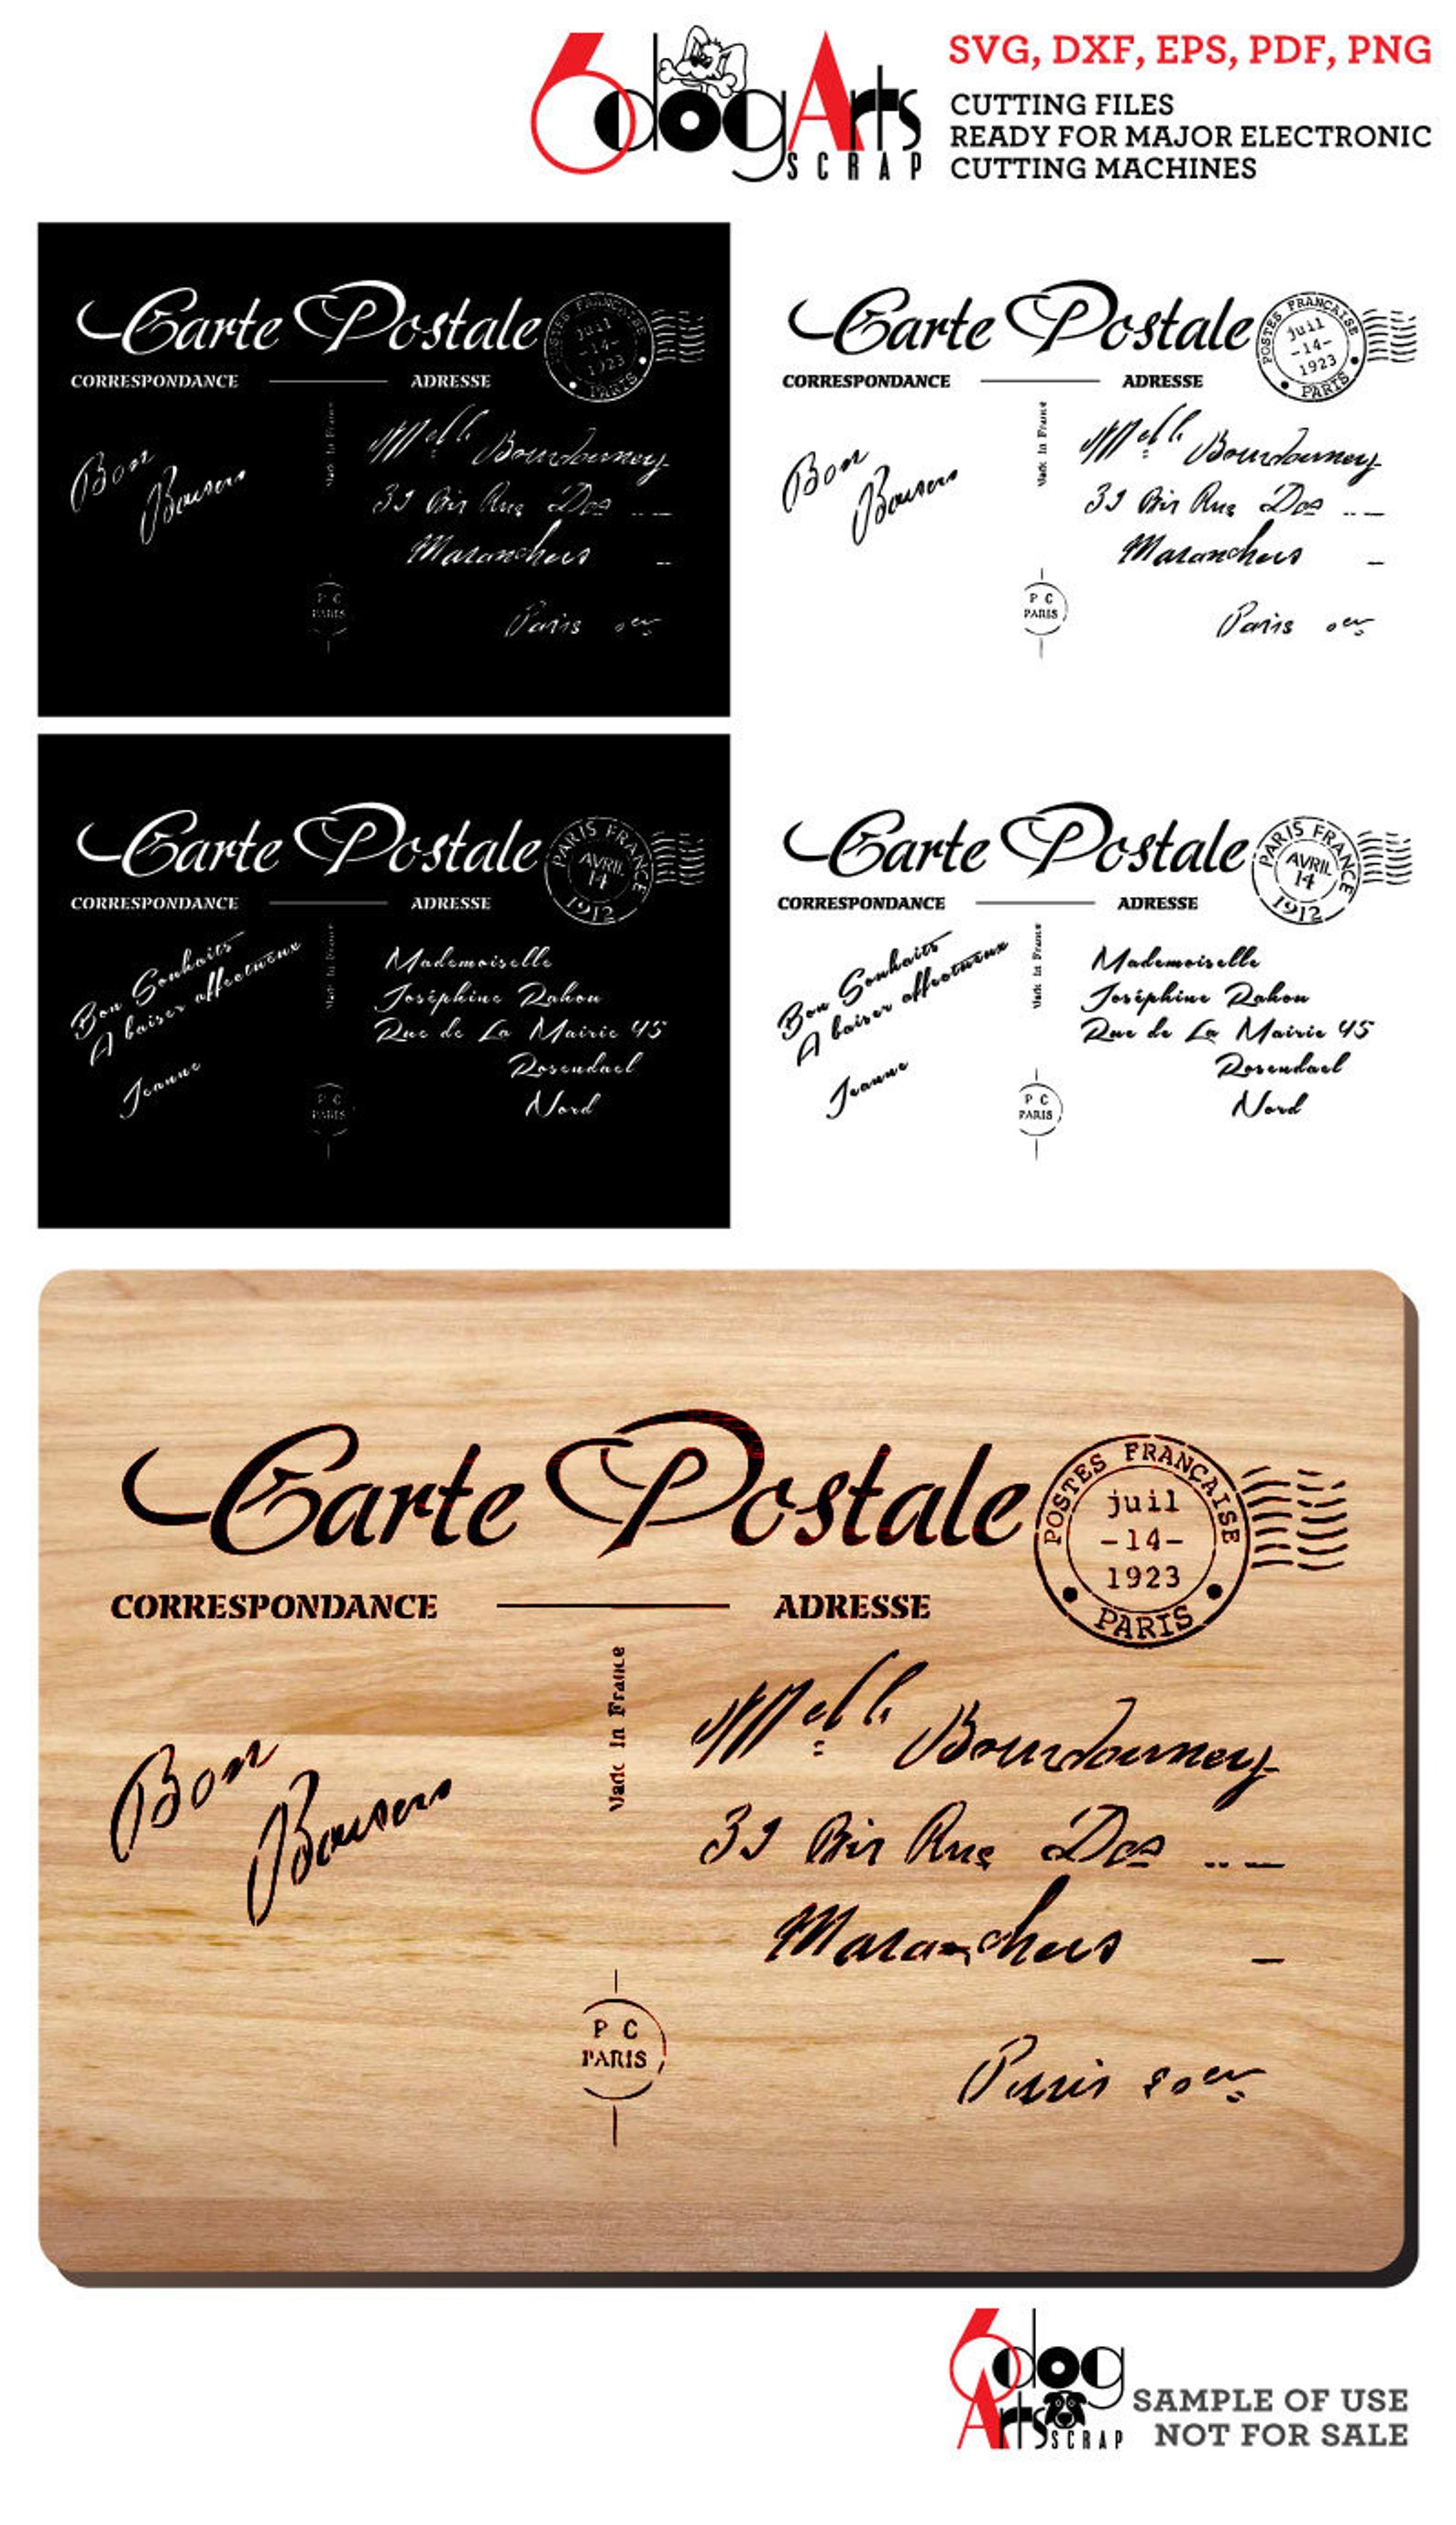 6dogArts
SCRAP
SVG, DXF, EPS, PDF, PNG
CUTTING FILES
READY FOR MAJOR ELECTRONIC
CUTTING MACHINES
Carte Postale
POSTES FRANCAISE
juil
-14-
1923
PARIS
CORRESPONDANCE
ADRESSE
Made In France
Bon
Melle
39 Bis Rue Des
Paris
P C
PARIS
Carte Postale
POSTES FRANCAISE
juil
-14-
1923
PARIS
CORRESPONDANCE
ADRESSE
Made In France
Bon
Melle
39 Bis Rue Des
Paris
P C
PARIS
Carte Postale
PARIS FRANCE
AVRIL
14
1912
CORRESPONDANCE
ADRESSE
Made In France
Bon Souhaits
A baiser affectueux
Jeanne
Mademoiselle
Joséphine Rahou
Rue de La Mairie 45
Rosendael
Nord
P C
PARIS
Carte Postale
PARIS FRANCE
AVRIL
14
1912
CORRESPONDANCE
ADRESSE
Made In France
Bon Souhaits
A baiser affectueux
Jeanne
Mademoiselle
Joséphine Rahou
Rue de La Mairie 45
Rosendael
Nord
P C
PARIS
Carte Postale
POSTES FRANCAISE
juil
-14-
1923
PARIS
CORRESPONDANCE
ADRESSE
Made In France
Bon
Melle
39 Bis Rue Des
Paris
P C
PARIS
6dog
Arts
SCRAP
SAMPLE OF USE
NOT FOR SALE